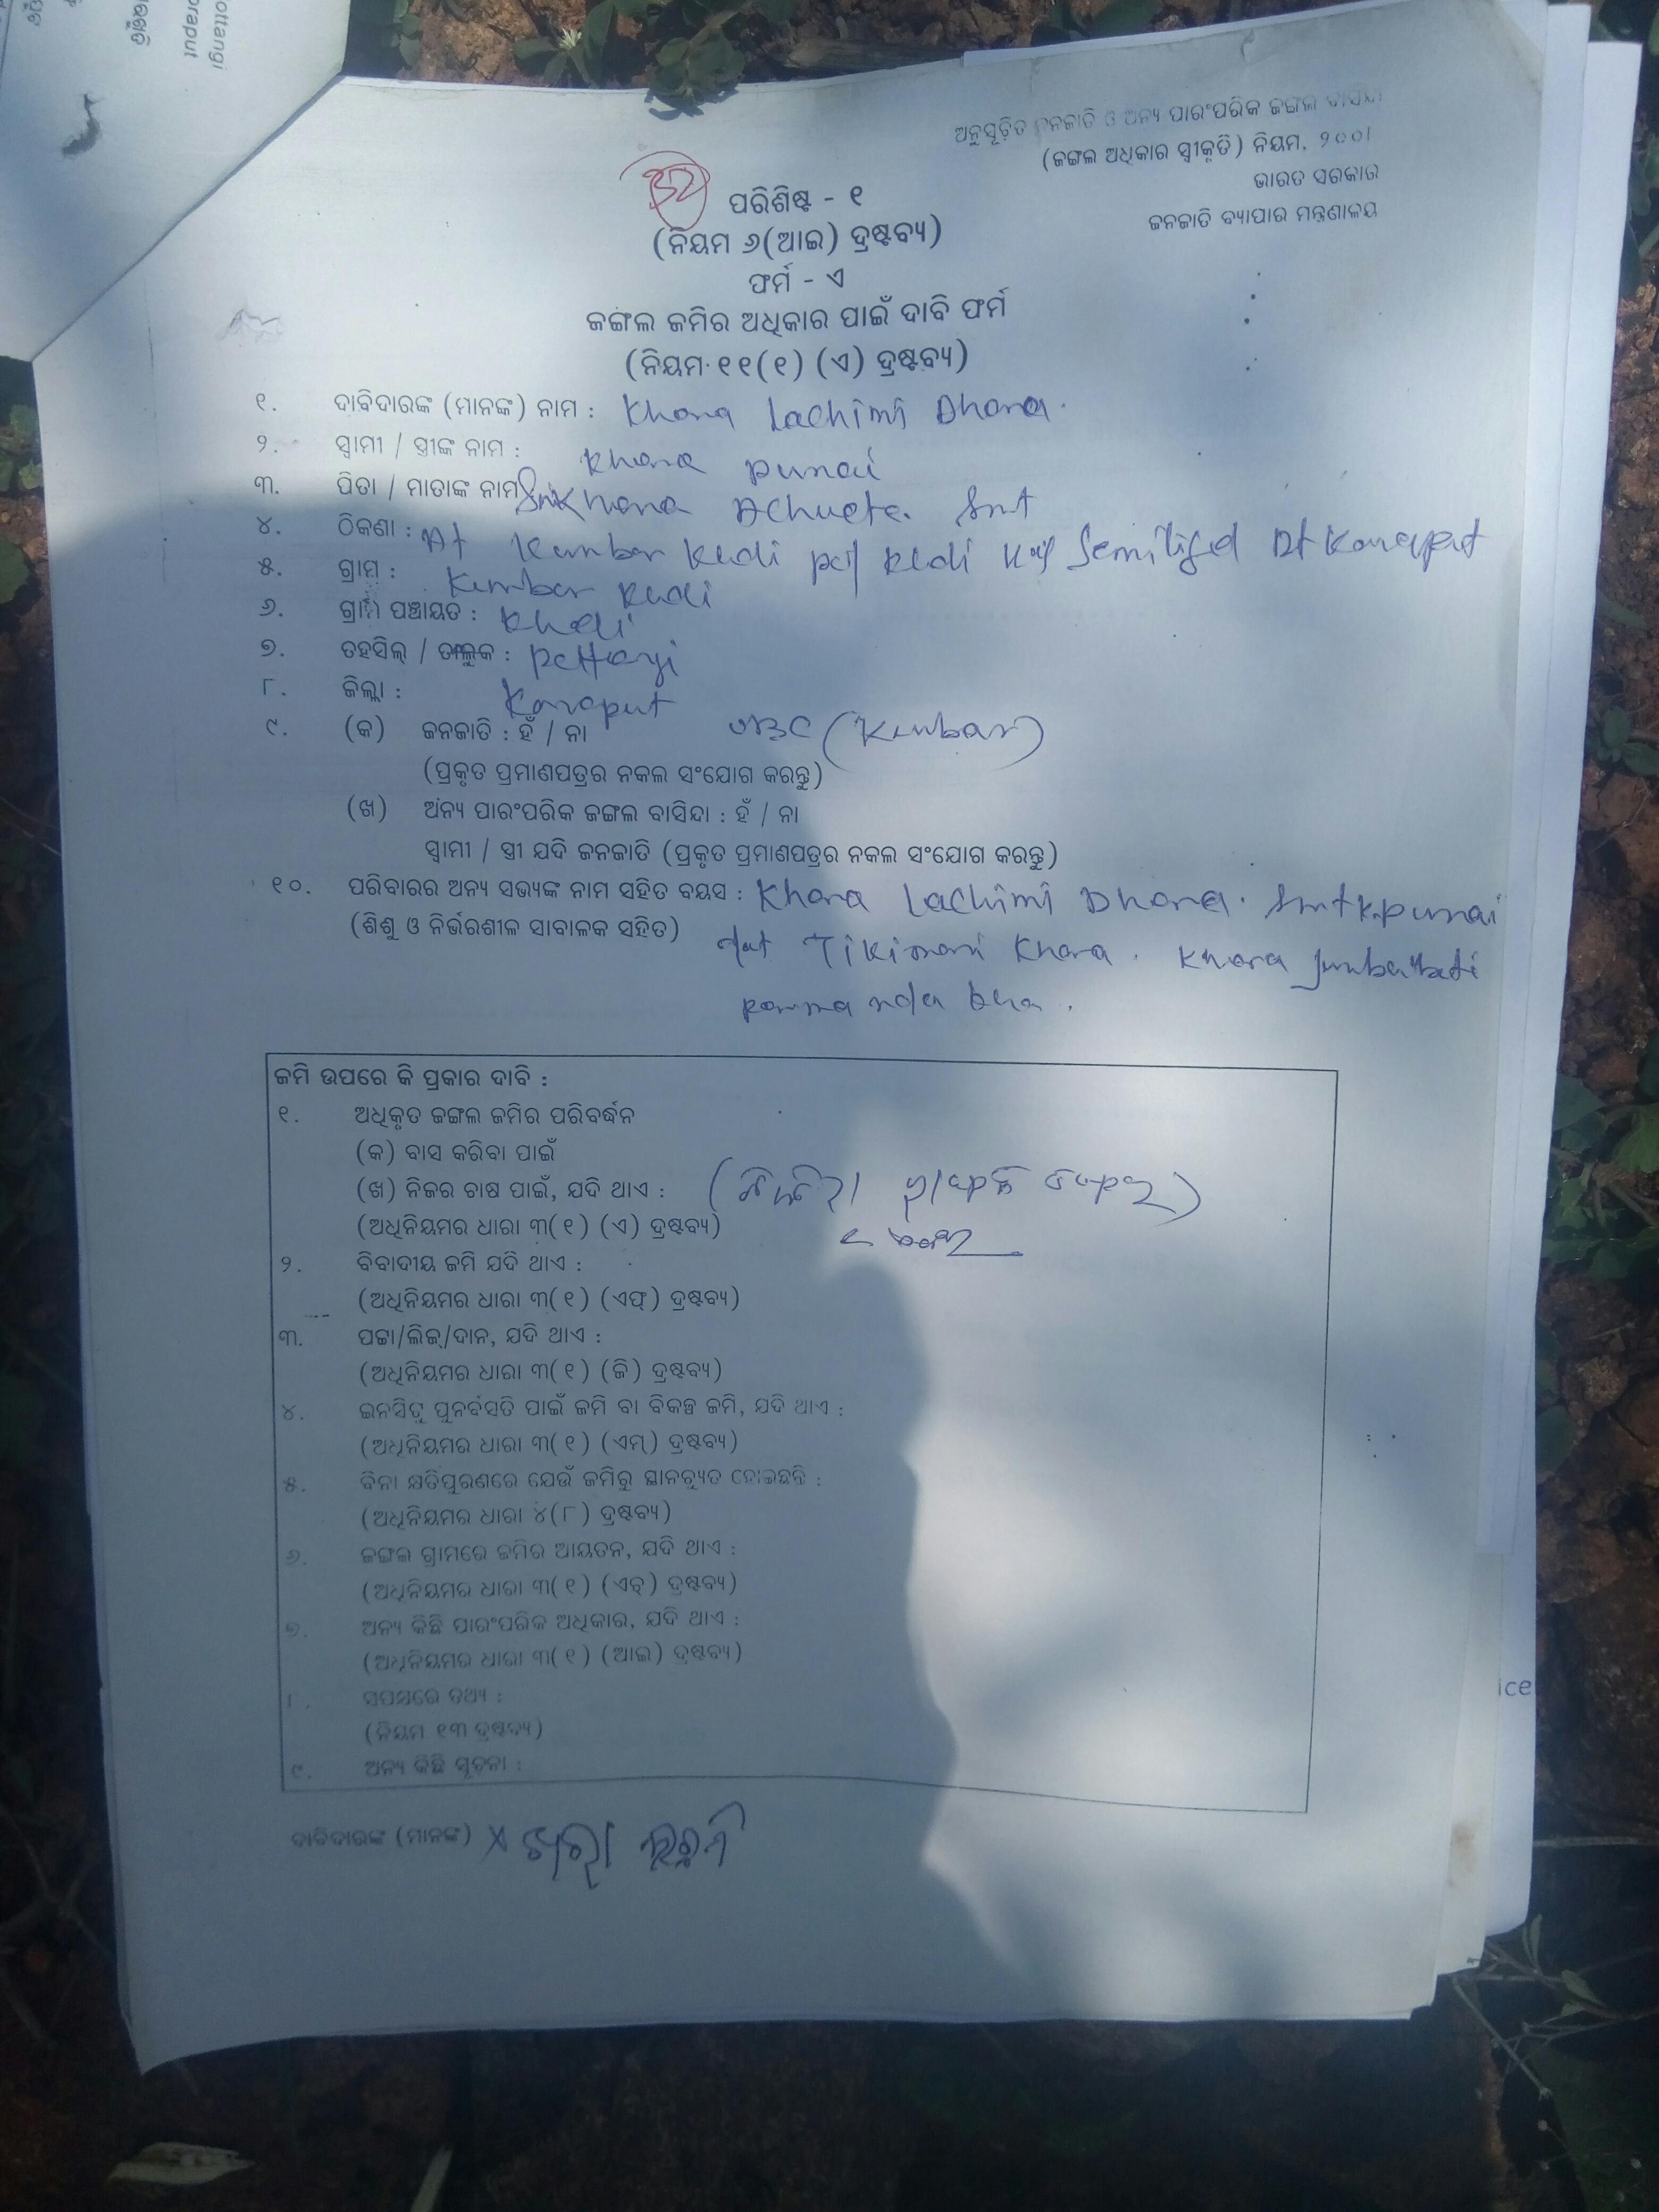 ottangi
oraput
ଅନୁସୂଚିତ ଜନଜାତି ଓ ଅନ୍ୟ ପାରଂପରିକ ଜଙ୍ଗଲ ବାସିନ୍ଦା
(ଜଙ୍ଗଲ ଅଧିକାର ସ୍ୱୀକୃତି) ନିୟମ, ୨୦୦୮
ଭାରତ ସରକାର
ଜନଜାତି ବ୍ୟାପାର ମନ୍ତ୍ରଣାଳୟ
32
ପରିଶିଷ୍ଟ - ୧
(ନିୟମ ୬(ଆଇ) ଦ୍ରଷ୍ଟବ୍ୟ)
ଫର୍ମ - ଏ
ଜଙ୍ଗଲ ଜମିର ଅଧିକାର ପାଇଁ ଦାବି ଫର୍ମ
(ନିୟମ ୧୧(୧) (ଏ) ଦ୍ରଷ୍ଟବ୍ୟ)
୧. ଦାବିଦାରଙ୍କ (ମାନଙ୍କ) ନାମ : Khora Lachimi Dhora.
୨. ସ୍ୱାମୀ / ସ୍ତ୍ରୀଙ୍କ ନାମ : Khora punai
୩. ପିତା / ମାତାଙ୍କ ନାମ Khora Smt
୪. ଠିକଣା : At Kumbar Semiliged Dt Koraput
୫. ଗ୍ରାମ : Kumbar
୬. ଗ୍ରାମ ପଞ୍ଚାୟତ :
୭. ତହସିଲ୍ / ତାଲୁକ : Pottangi
୮. ଜିଲ୍ଲା : Koraput
୯. (କ) ଜନଜାତି : ହଁ / ନା OBC (Kumbar)
(ପ୍ରକୃତ ପ୍ରମାଣପତ୍ରର ନକଲ ସଂଯୋଗ କରନ୍ତୁ)
(ଖ) ଅନ୍ୟ ପାରଂପରିକ ଜଙ୍ଗଲ ବାସିନ୍ଦା : ହଁ / ନା
ସ୍ୱାମୀ / ସ୍ତ୍ରୀ ଯଦି ଜନଜାତି (ପ୍ରକୃତ ପ୍ରମାଣପତ୍ରର ନକଲ ସଂଯୋଗ କରନ୍ତୁ)
୧୦. ପରିବାରର ଅନ୍ୟ ସଭ୍ୟଙ୍କ ନାମ ସହିତ ବୟସ : Khora Lachimi Dhora. Smt K.punai
(ଶିଶୁ ଓ ନିର୍ଭରଶୀଳ ସାବାଳକ ସହିତ) Tikimoni Khora. Khora
ଜମି ଉପରେ କି ପ୍ରକାର ଦାବି :
୧. ଅଧିକୃତ ଜଙ୍ଗଲ ଜମିର ପରିବର୍ଦ୍ଧନ
(କ) ବାସ କରିବା ପାଇଁ
(ଖ) ନିଜର ଚାଷ ପାଇଁ, ଯଦି ଥାଏ :
(ଅଧିନିୟମର ଧାରା ୩(୧) (ଏ) ଦ୍ରଷ୍ଟବ୍ୟ)
୨. ବିବାଦୀୟ ଜମି ଯଦି ଥାଏ :
(ଅଧିନିୟମର ଧାରା ୩(୧) (ଏଫ୍) ଦ୍ରଷ୍ଟବ୍ୟ)
୩. ପଟ୍ଟା/ଲିଜ୍/ଦାନ, ଯଦି ଥାଏ :
(ଅଧିନିୟମର ଧାରା ୩(୧) (ଜି) ଦ୍ରଷ୍ଟବ୍ୟ)
୪. ଇନସିଟୁ ପୁନର୍ବସତି ପାଇଁ ଜମି ବା ବିକଳ୍ପ ଜମି, ଯଦି ଥାଏ :
(ଅଧିନିୟମର ଧାରା ୩(୧) (ଏମ୍) ଦ୍ରଷ୍ଟବ୍ୟ)
୫. ବିନା କ୍ଷତିପୁରଣରେ ଯେଉଁ ଜମିରୁ ସ୍ଥାନଚ୍ୟୁତ ହୋଇଛନ୍ତି :
(ଅଧିନିୟମର ଧାରା ୪(୮) ଦ୍ରଷ୍ଟବ୍ୟ)
୬. ଜଙ୍ଗଲ ଗ୍ରାମରେ ଜମିର ଆୟତନ, ଯଦି ଥାଏ :
(ଅଧିନିୟମର ଧାରା ୩(୧) (ଏଚ୍) ଦ୍ରଷ୍ଟବ୍ୟ)
୭. ଅନ୍ୟ କିଛି ପାରଂପରିକ ଅଧିକାର, ଯଦି ଥାଏ :
(ଅଧିନିୟମର ଧାରା ୩(୧) (ଆଇ) ଦ୍ରଷ୍ଟବ୍ୟ)
୮. ସପକ୍ଷରେ ତଥ୍ୟ :
(ନିୟମ ୧୩ ଦ୍ରଷ୍ଟବ୍ୟ)
୯. ଅନ୍ୟ କିଛି ସୂଚନା :
ice
ଦାବିଦାରଙ୍କ (ମାନଙ୍କ) x ଖରା ଲଛମି